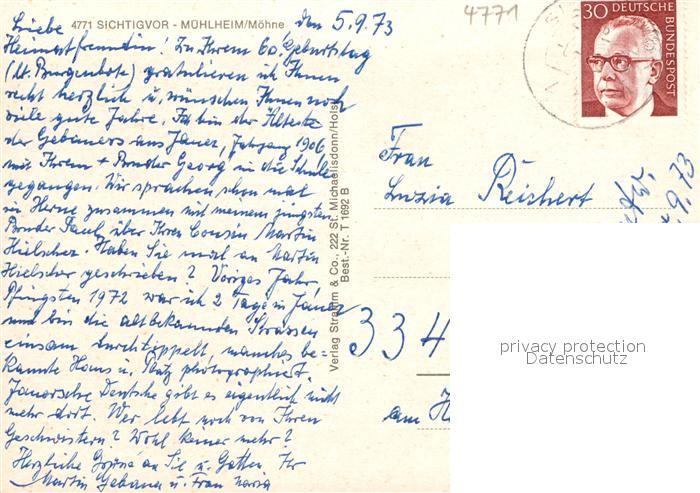 4771 SICHTIGVOR - MÜHLHEIM/Möhne
den 5.9.73
Liebe
Heimatfreundin! Zu Ihrem 60. Geburtstag
(lt. Burgenbote) gratulieren ich Ihnen
recht herzlich u. wünschen Ihnen noch
viele gute Jahre. Ich bin der Älteste
der Gebauers aus Jauer, Jahrgang 1906
mit Ihrem + Bruder Georg in die Schule
gegangen. Wir sprachen schon mal
in Herne zusammen mit meinem jüngsten
Bruder Paul, über Ihren Cousin Martin
Hielscher. Haben Sie mal an Martin
Hielscher geschrieben? Voriges Jahr,
Pfingsten 1972 war ich 2 Tage in Jauer
und bin die altbekannten Strassen
einsam durchtippelt, manches be-
kannte Haus u. Platz photographiert.
Jauersche Deutsche gibt es eigentlich nicht
mehr dort. Wer lebt noch von Ihren
Geschwistern? Wohl keiner mehr?
Herzliche Grüsse an Sie u. Gatten. Ihr
Martin Gebauer u. Frau
Verlag Stramm & Co., 222 St. Michaelisdonn/Holst.
Best.-Nr. T 1692 B
4771
30 DEUTSCHE BUNDESPOST
Frau
Luzia Reichert
334
am
9.73
privacy protection
Datenschutz